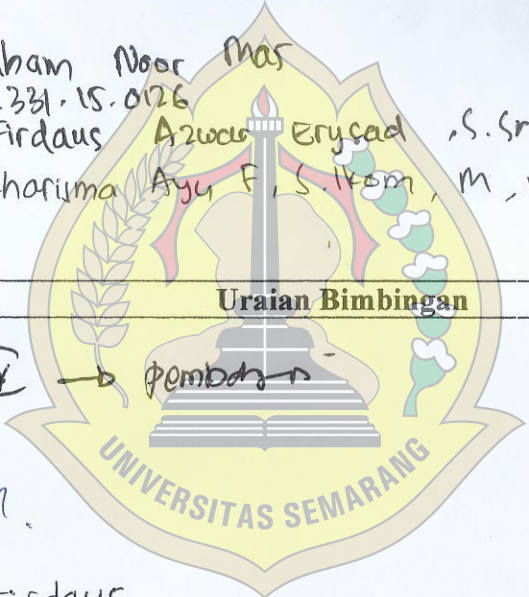 ham Noor Mas
.331.15.0126
Firdaus Azwar Ersyad , S.Sn
harisma Ayu F, S.Ikom, M
Uraian Bimbingan
→
UNIVERSITAS SEMARANG